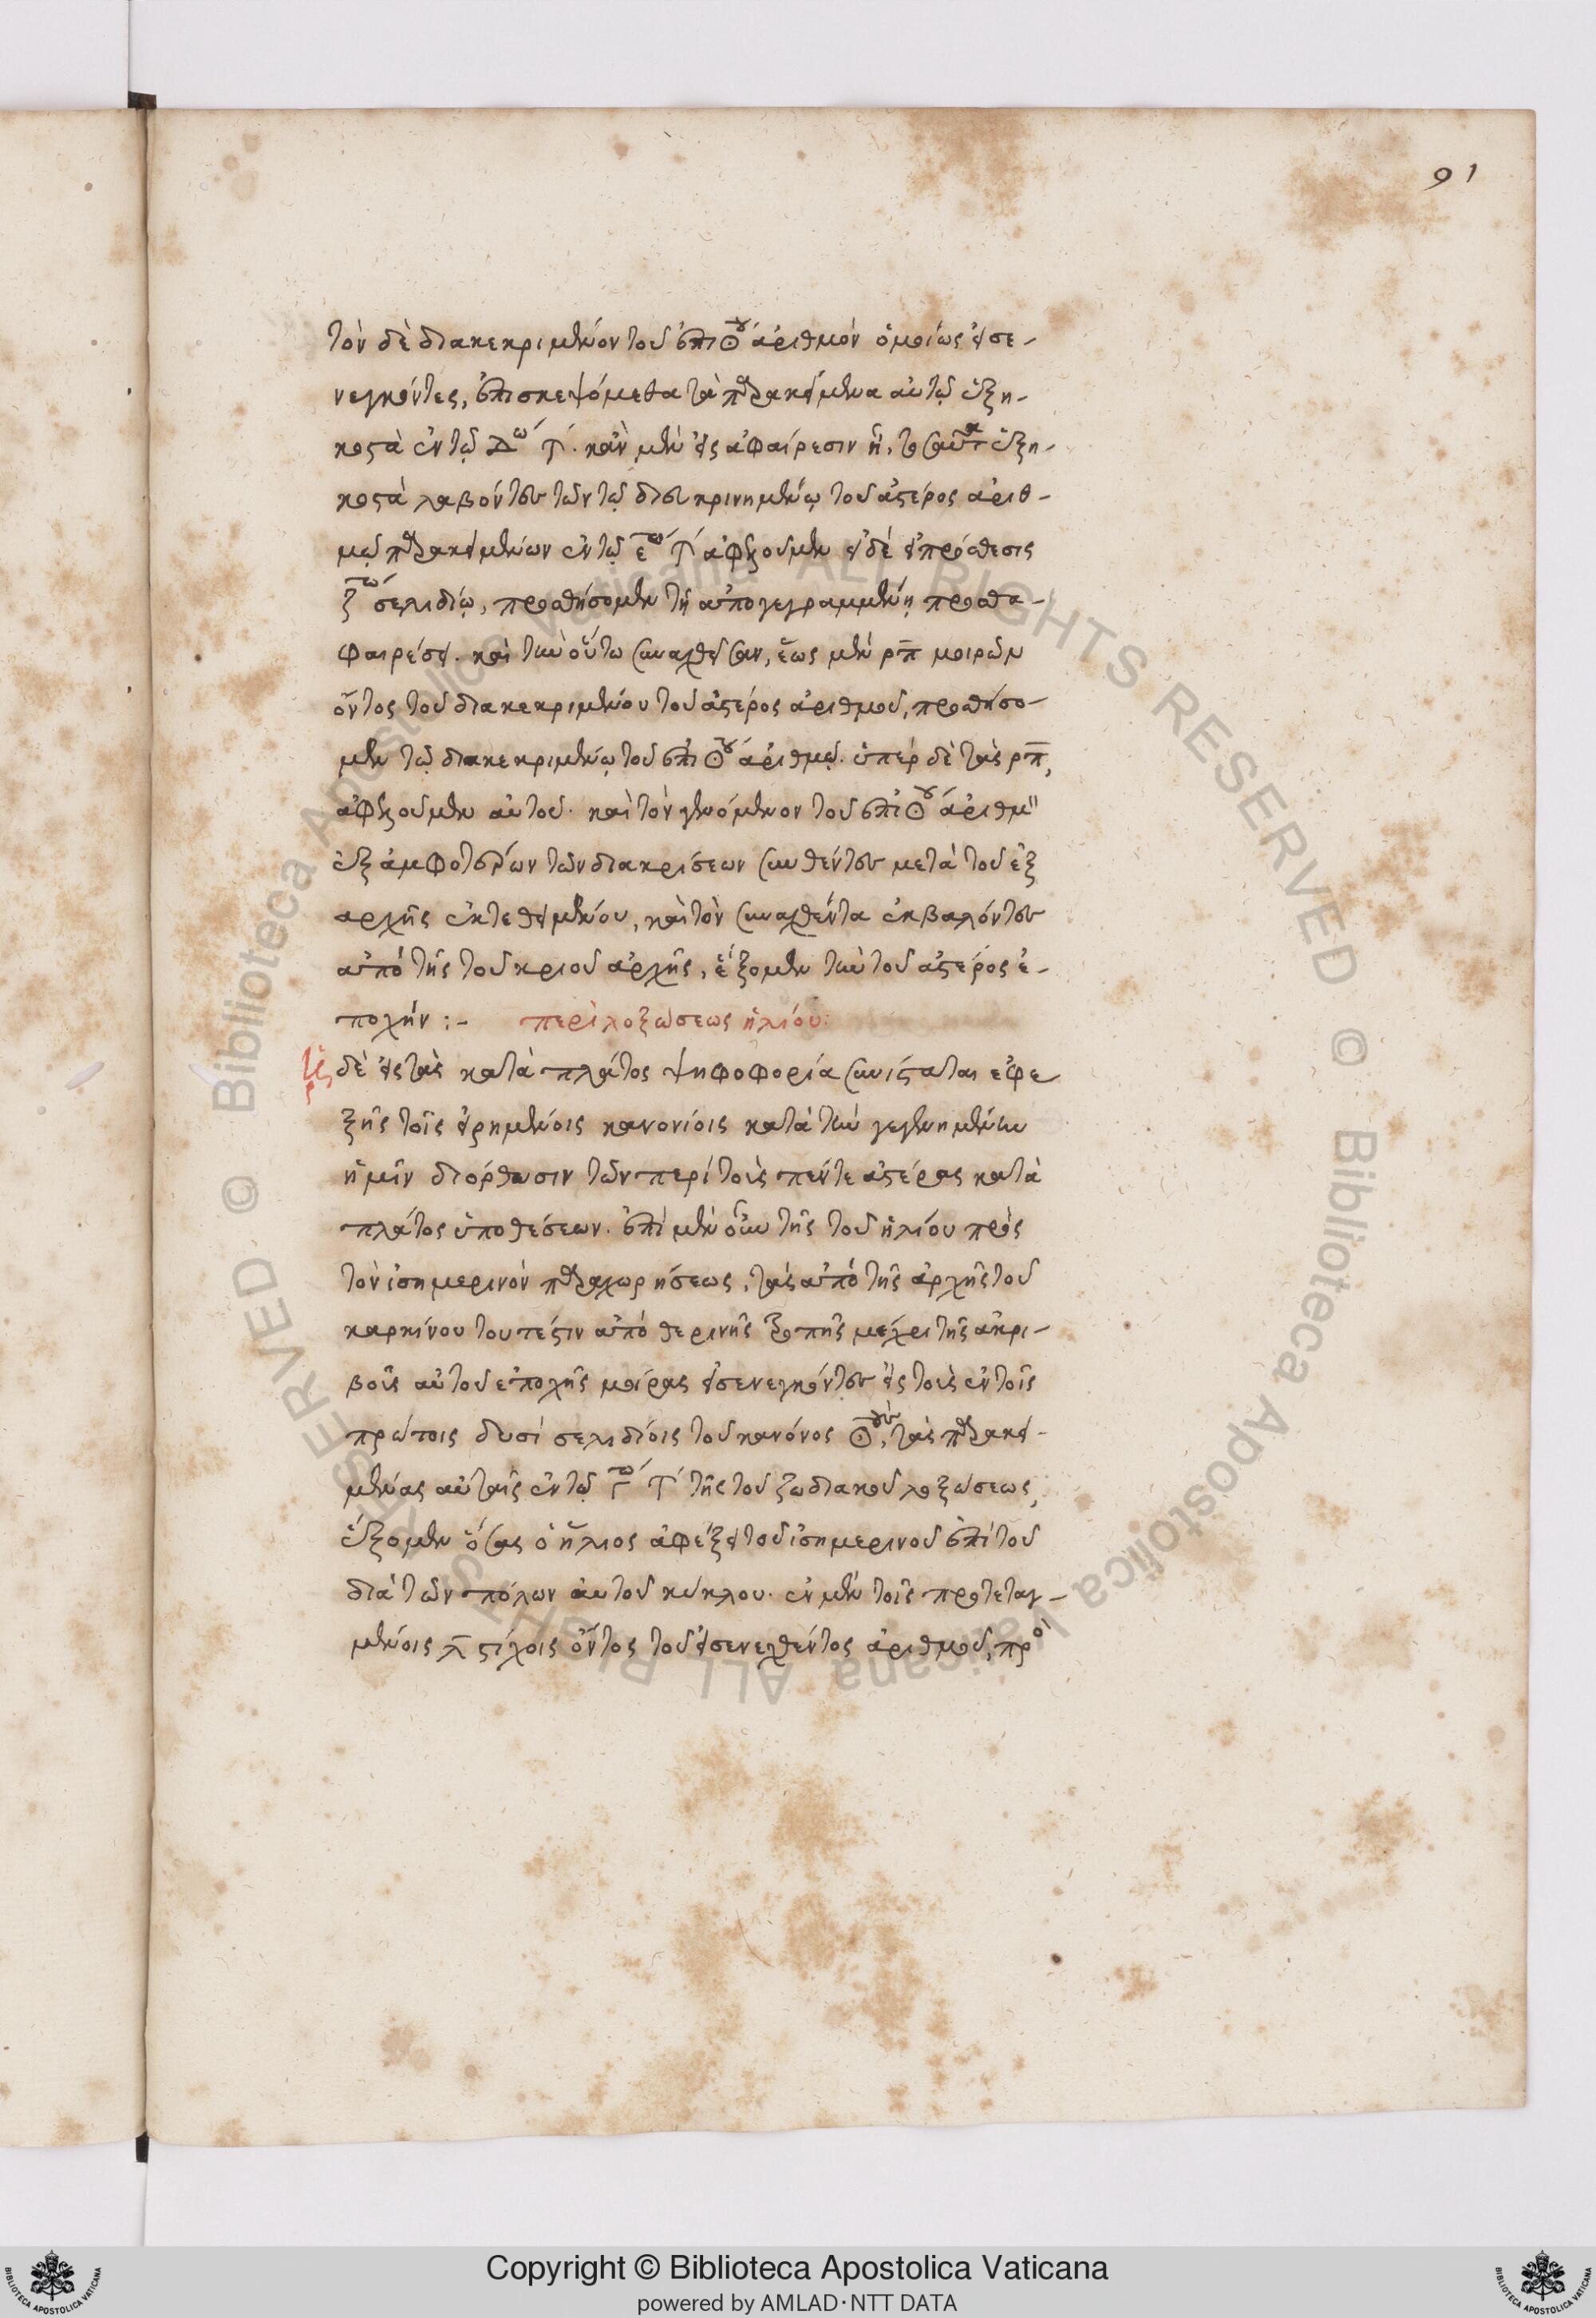 91
τὸν δὲ διακεκριμένον τοῦ ἐπικύκλου ἀριθμὸν ὁμοίως εἰσε-
νεγκόντες, ἐπισκεψόμεθα τὰ παρακείμενα αὐτῷ ἑξη-
κοστὰ ἐν τῷ κἂν μὲν εἰς ἀφαίρεσιν ᾖ, τοσαῦτα ἑξη-
κοστὰ λαβόντες τῶν τῷ διευκρινημένῳ τοῦ ἀστέρος ἀριθ-
μῷ παρακειμένων ἐν τῷ ε ἀφελοῦμεν εἰ δὲ πρόσθεσις
ζ σελιδίῳ, προσθήσομεν τῇ ἀπογεγραμμένῃ προσθα-
φαιρέσει. καὶ τὴν οὕτω συναχθεῖσαν, ἕως μὲν ρπ μοιρῶν
ὄντος τοῦ διακεκριμένου τοῦ ἀστέρος ἀριθμοῦ, προσθήσο-
μεν τῷ διακεκριμένῳ τοῦ ἀριθμῷ. ὑπὲρ δὲ τὰς ρπ,
ἀφελοῦμεν αὐτοῦ. καὶ τὸν γενόμενον τοῦ ἀριθμ
ἐξ ἀμφοτέρων τῶν διακρίσεων συνθέντες μετὰ τοῦ ἐξ
ἀρχῆς ἐκτεθειμένου, καὶ τὸν συναχθέντα ἐκβαλόντες
ἀπὸ τῆς τοῦ κριοῦ ἀρχῆς, ἕξομεν τὴν τοῦ ἀστέρος ἐ-
ποχήν :- περὶ λοξώσεως ἡλίου:
δὲ εἰς τὰς κατὰ πλάτος ψηφοφορία συνίσταται ἐφε
ξῆς τοῖς εἰρημένοις κανονίοις κατὰ τὴν γεγενημένην
ἡμῖν διόρθωσιν τῶν περὶ τοὺς πέντε ἀστέρας κατὰ
πλάτος ὑποθέσεων. ἐπὶ μὲν οὖν τῆς τοῦ ἡλίου πρὸς
τὸν ἰσημερινὸν παραχωρήσεως, τὰς ἀπὸ τῆς ἀρχῆς τοῦ
καρκίνου τουτέστιν ἀπὸ θερινῆς τροπῆς μέχρι τῆς ἀκρι-
βοῦς αὐτοῦ ἐποχῆς μοίρας εἰσενεγκόντες εἰς τοὺς ἐν τοῖς
πρώτοις δυσὶ σελιδίοις τοῦ κανόνος τὰς παρακει-
μένας αὐταῖς ἐν τῷ γ τῆς τοῦ ζωδιακοῦ λοξώσεως,
ἕξομεν ὅσας ὁ ἥλιος ἀφέξει τοῦ ἰσημερινοῦ ἐπὶ τοῦ
διὰ τῶν πόλων αὐτοῦ κύκλου. ἐν μὲν τοῖς προτεταγ-
μένοις λ στίχοις ὄντος τοῦ εἰσενεχθέντος ἀριθμοῦ, πρὸ
Copyright © Biblioteca Apostolica Vaticana
powered by AMLAD·NTT DATA
© Biblioteca Apostolica Vaticana ALL RIGHTS RESERVED
© Biblioteca Apostolica Vaticana ALL RIGHTS RESERVED
BIBLIOTECA APOSTOLICA VATICANA
BIBLIOTECA APOSTOLICA VATICANA